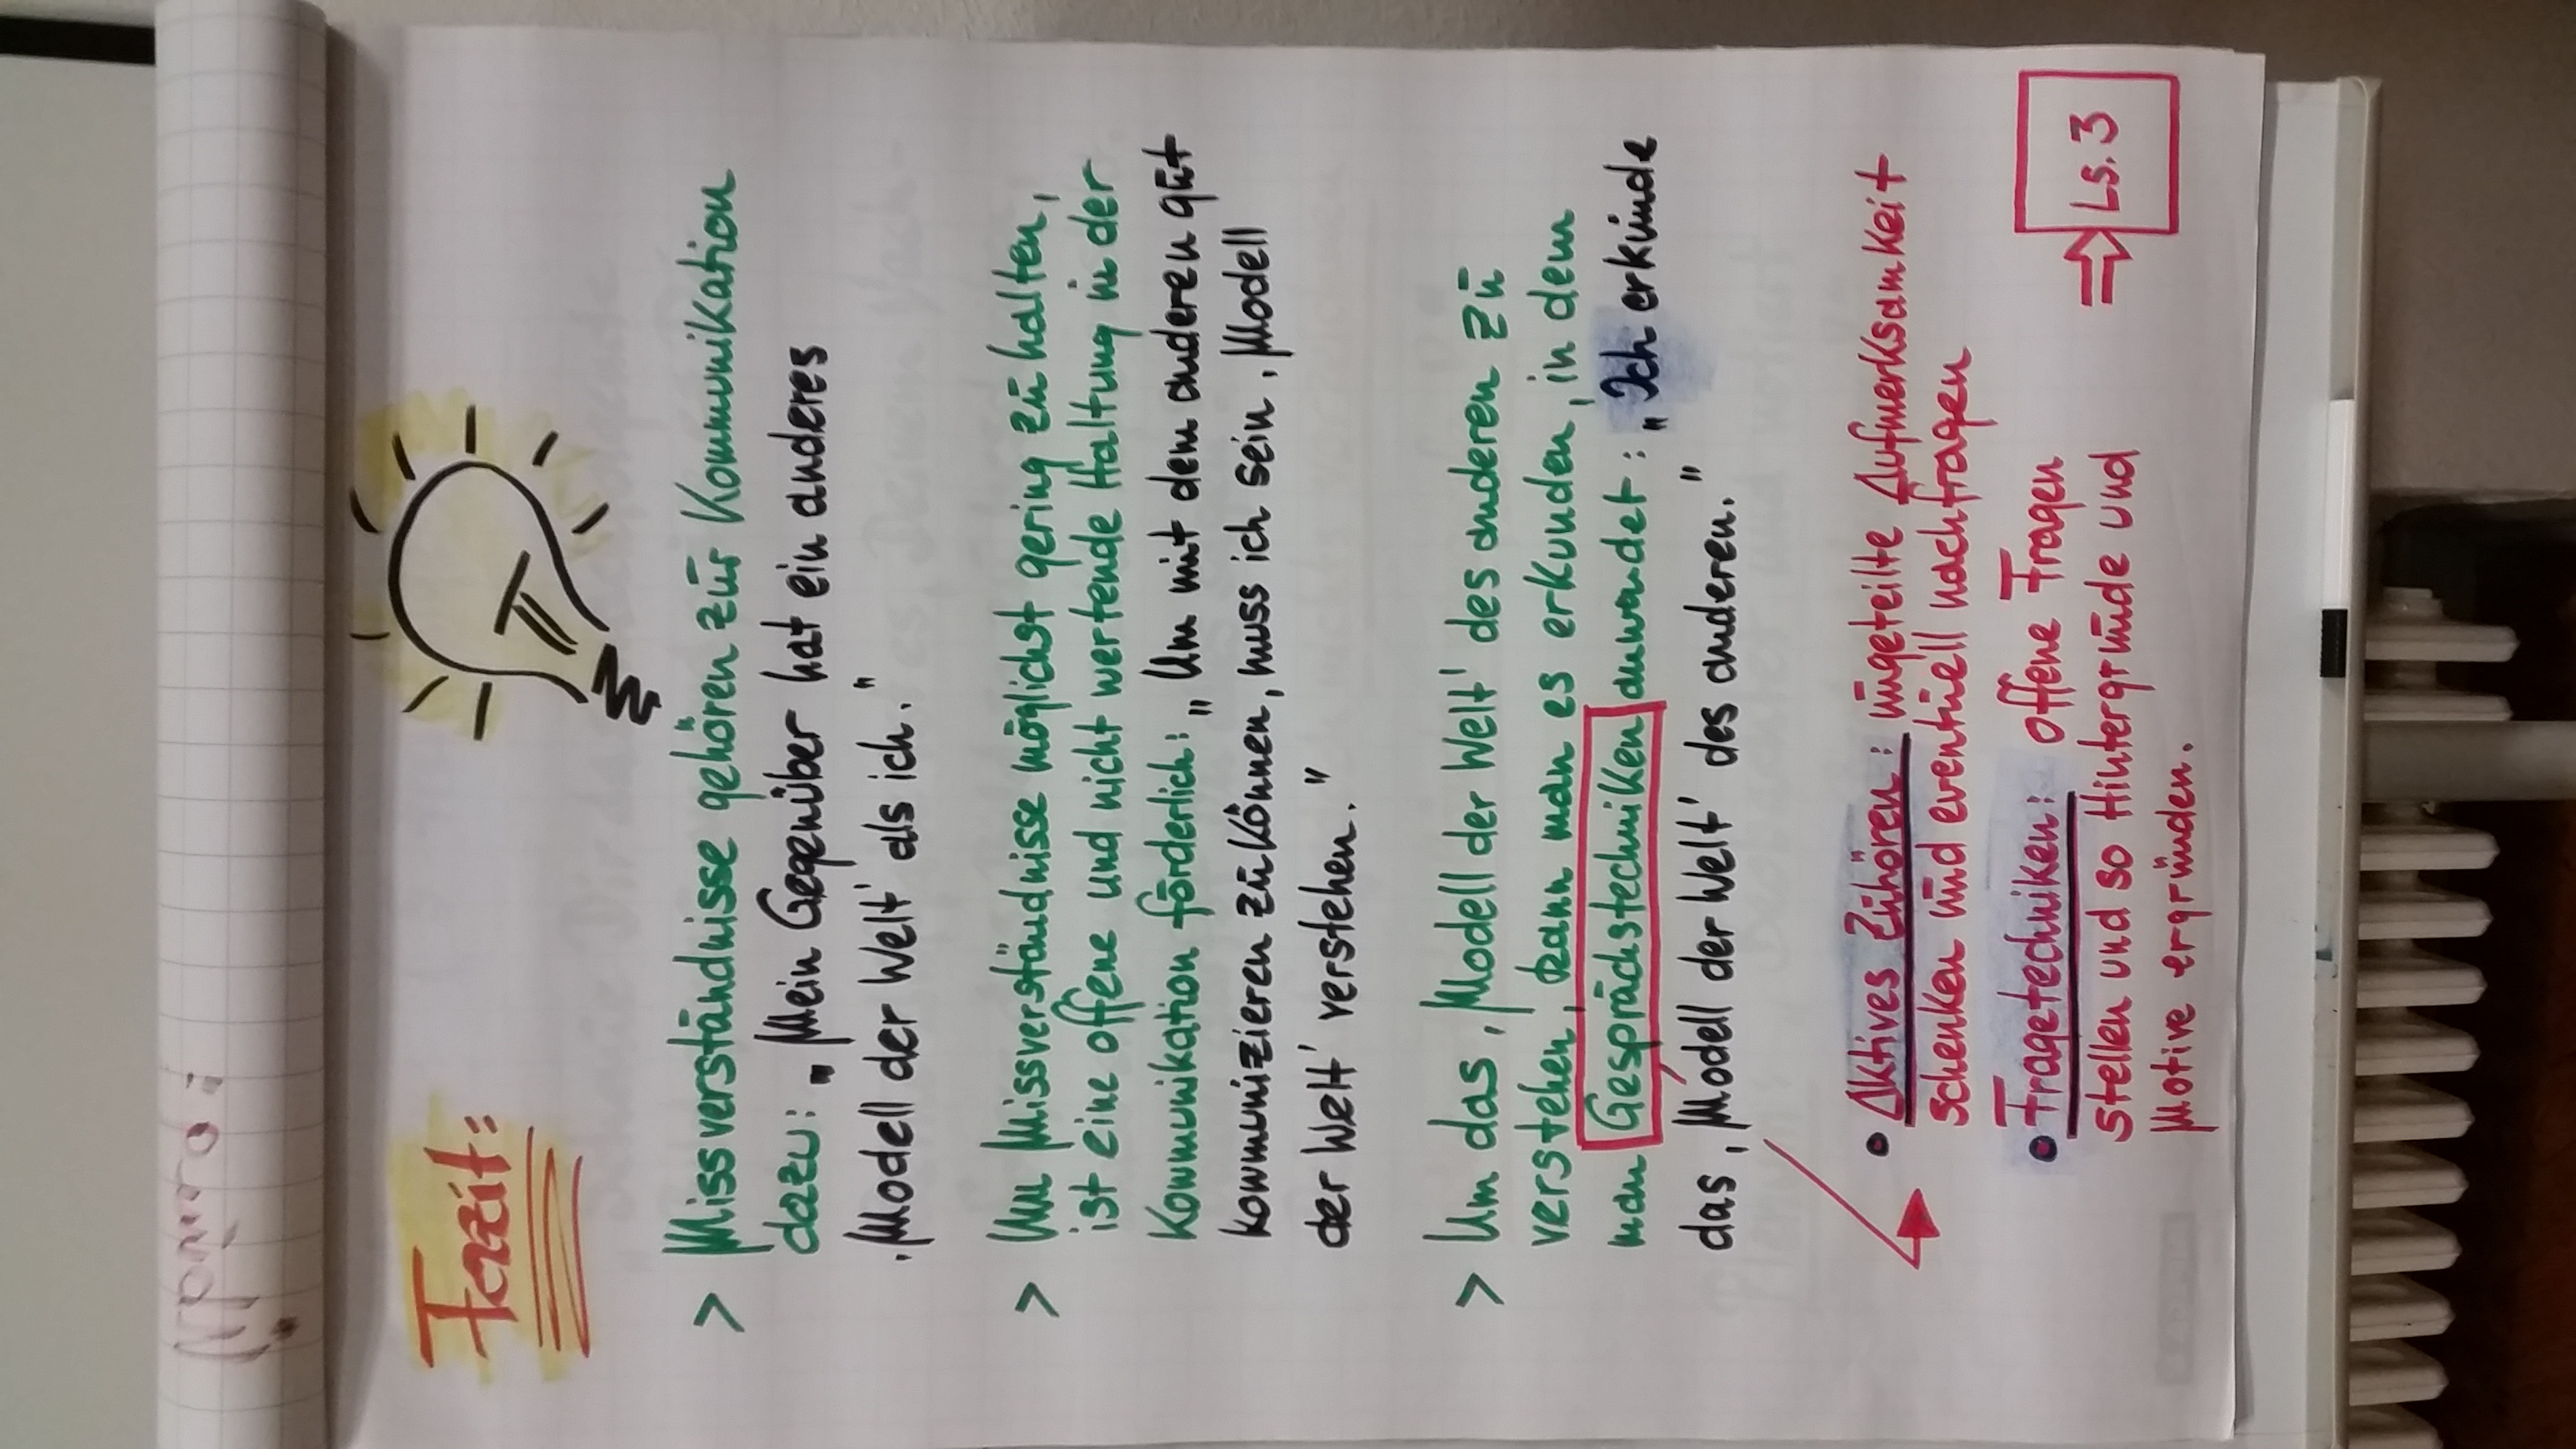 Fazit:
> Missverständnisse gehören zur Kommunikation
dazu: „Mein Gegenüber hat ein anderes
‚Modell der Welt' als ich."
> Um Missverständnisse möglichst gering zu halten,
ist eine offene und nicht wertende Haltung in der
Kommunikation förderlich: „Um mit dem anderen gut
kommunizieren zu können, muss ich sein ‚Modell
der Welt' verstehen."
> Um das ‚Modell der Welt' des anderen zu
verstehen, kann man es erkunden, in dem
man Gesprächstechniken anwendet: „Ich erkunde
das ‚Modell der Welt' des anderen."
• Aktives Zuhören: ungeteilte Aufmerksamkeit
schenken und eventuell nachfragen
• Fragetechniken: offene Fragen
stellen und so Hintergründe und
Motive ergründen.
Ls. 3